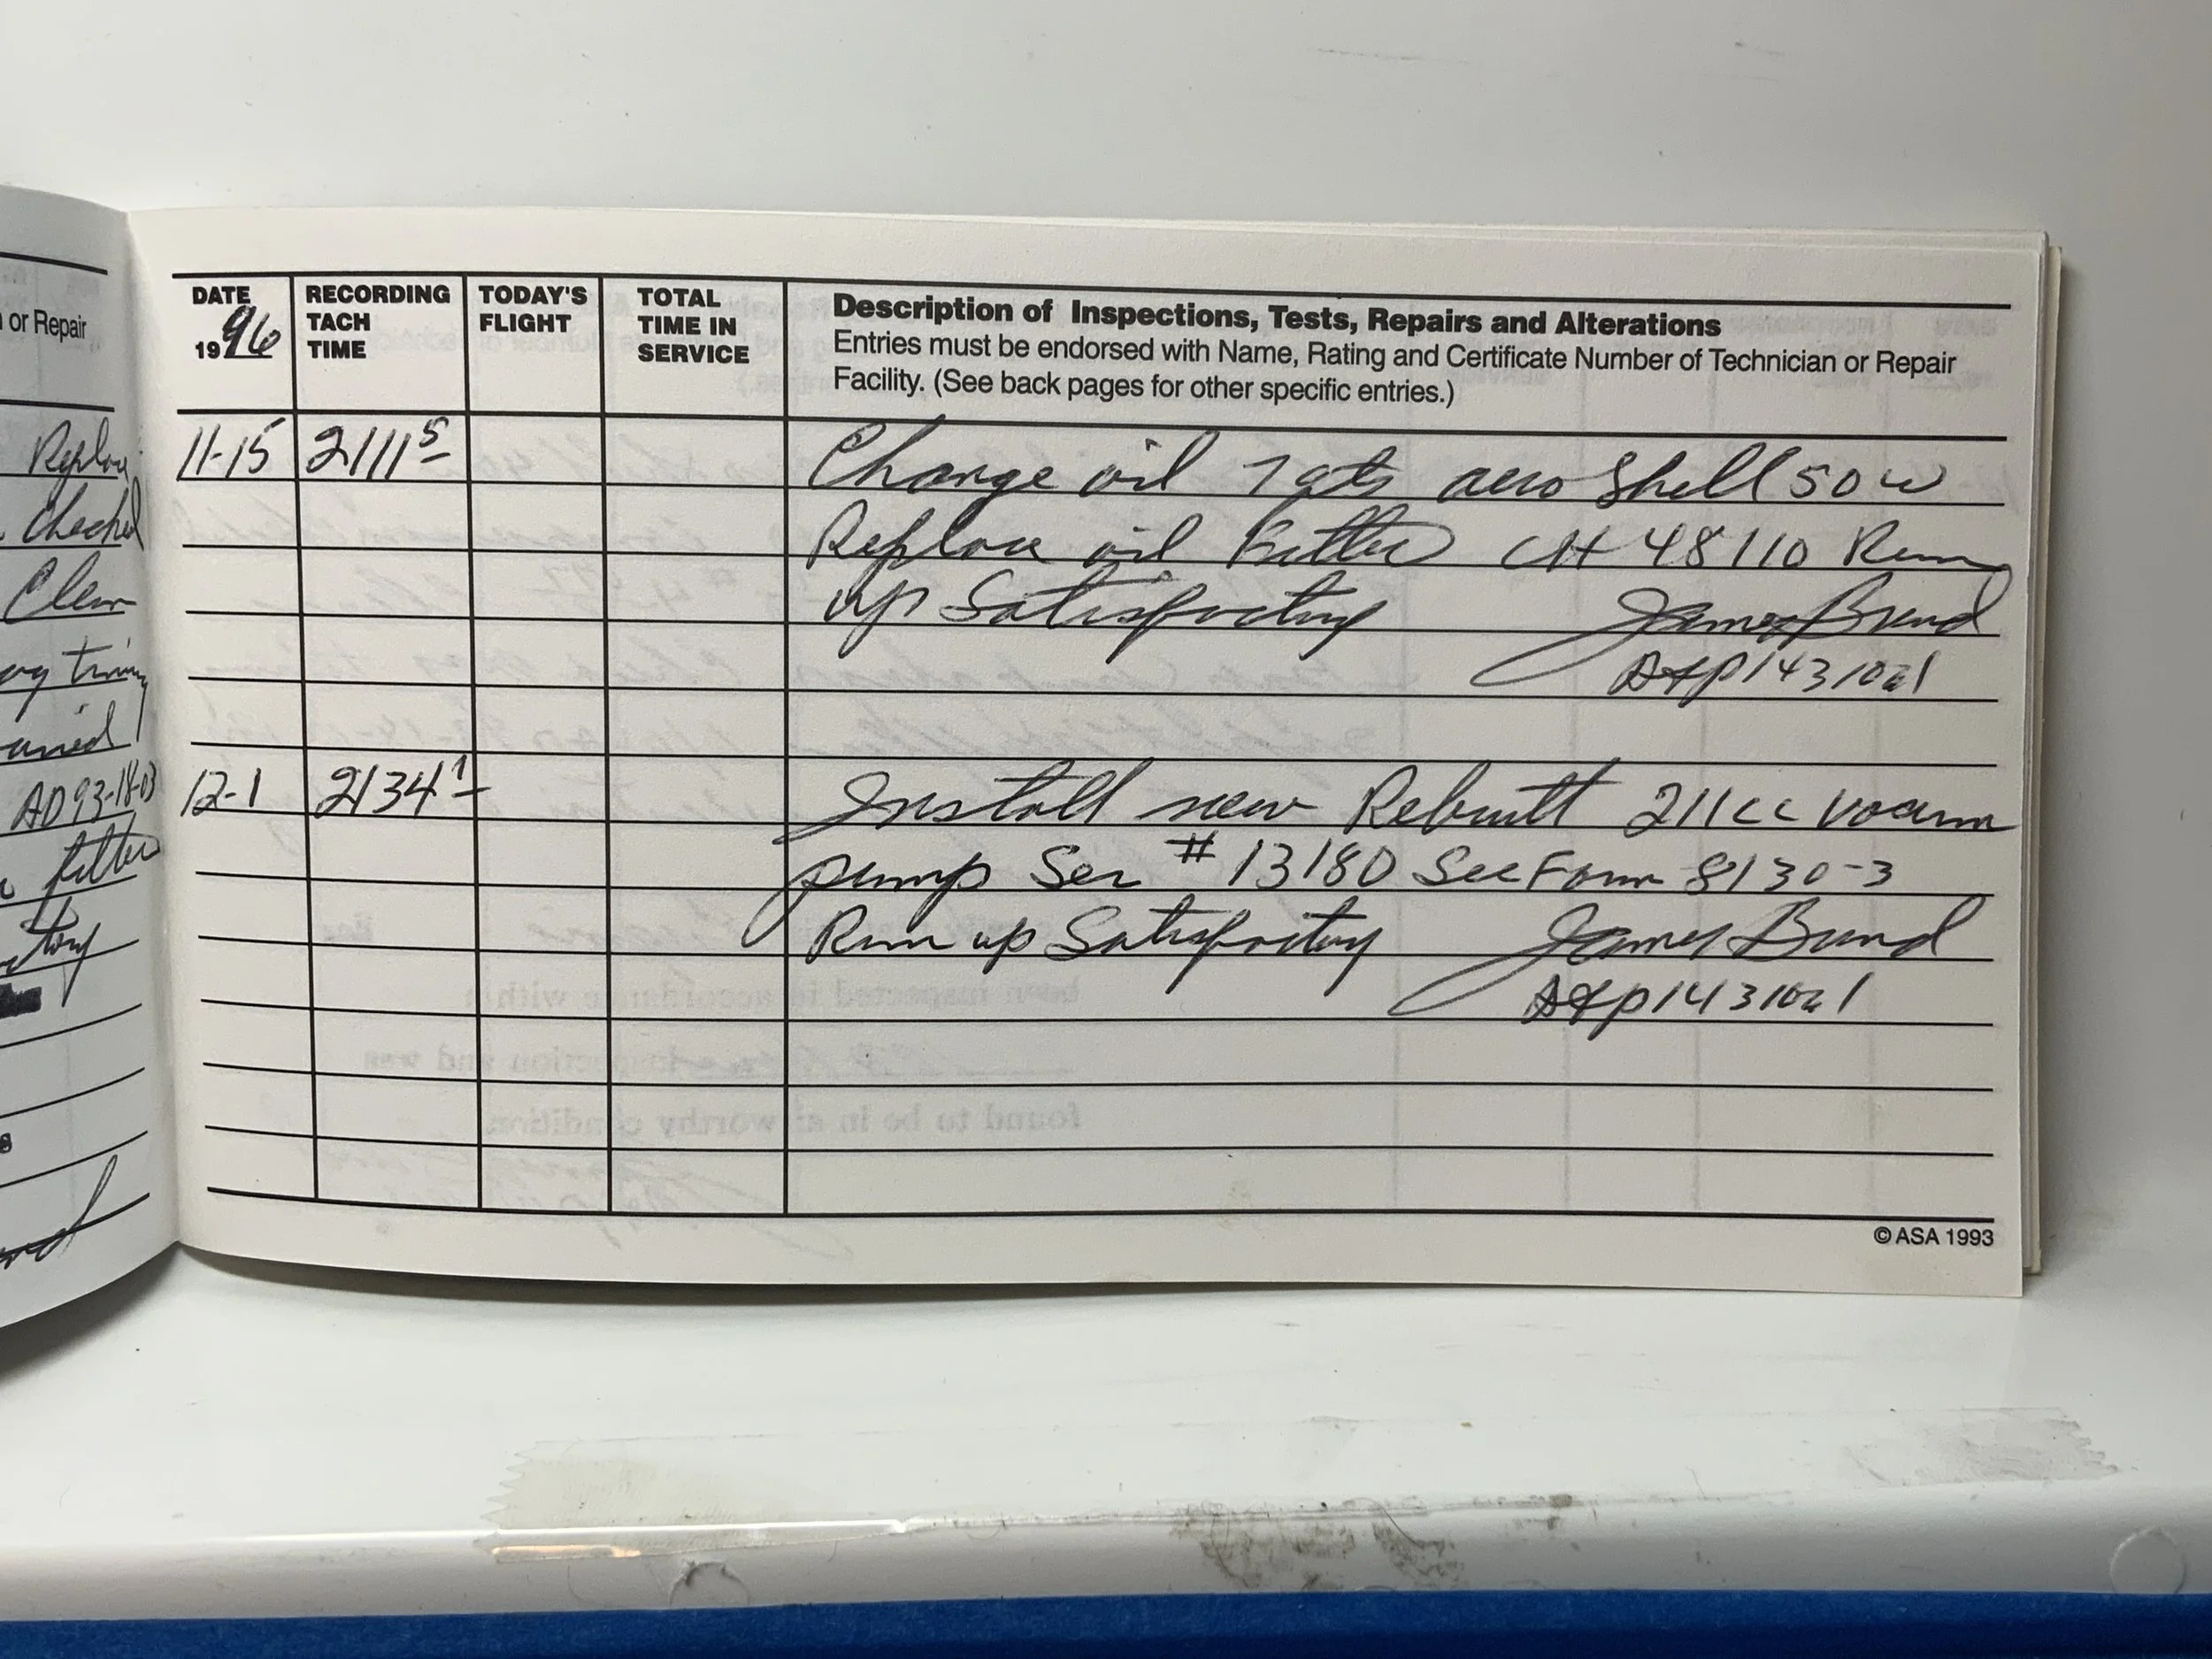 or Repair
Replace
Checked
Clean
timing
AD 93-18-03
filter
DATE
1996
RECORDING
TACH
TIME
TODAY'S
FLIGHT
TOTAL
TIME IN
SERVICE
Description of Inspections, Tests, Repairs and Alterations
Entries must be endorsed with Name, Rating and Certificate Number of Technician or Repair
Facility. (See back pages for other specific entries.)
11-15 2111 5 Change oil 7 qts aero Shell 50 w
Replace oil Filter CH 48110 Run
up Satisfactory James
A&P
12-1 2134 1 Install new Rebuilt 211cc vacuum
pump Ser # 13180 See Form 8130-3
Run up Satisfactory James
A&P
© ASA 1993